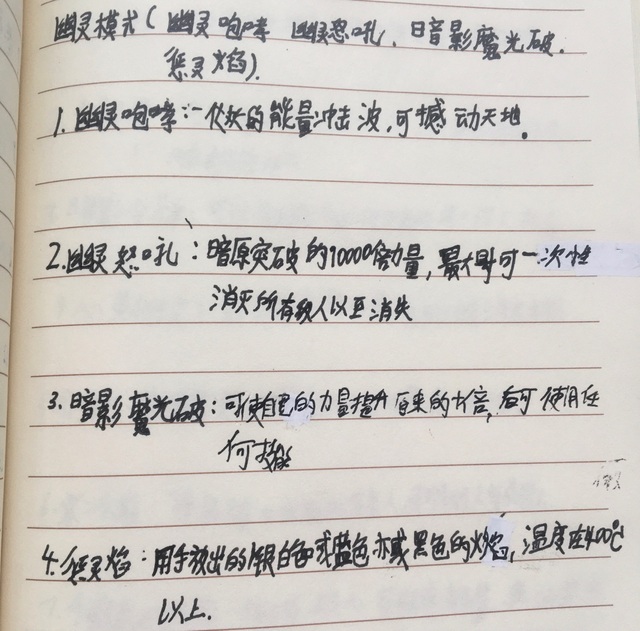 幽灵模式(幽灵咆哮 幽灵怒吼.暗影魔光破.
灵焰).
1.幽灵咆哮:一伏的能量冲击波,可撼动天地。
2.幽灵怒吼:暗原突破的10000倍力量,最大时可一次性
消灭所有敌人以至消失
3.暗影魔光破:可使自己的力量提升原来的十倍,后可使用任
何技能
4.灵焰:用手放出的银白色或蓝色亦或黑色的火焰,温度在400℃
以上.